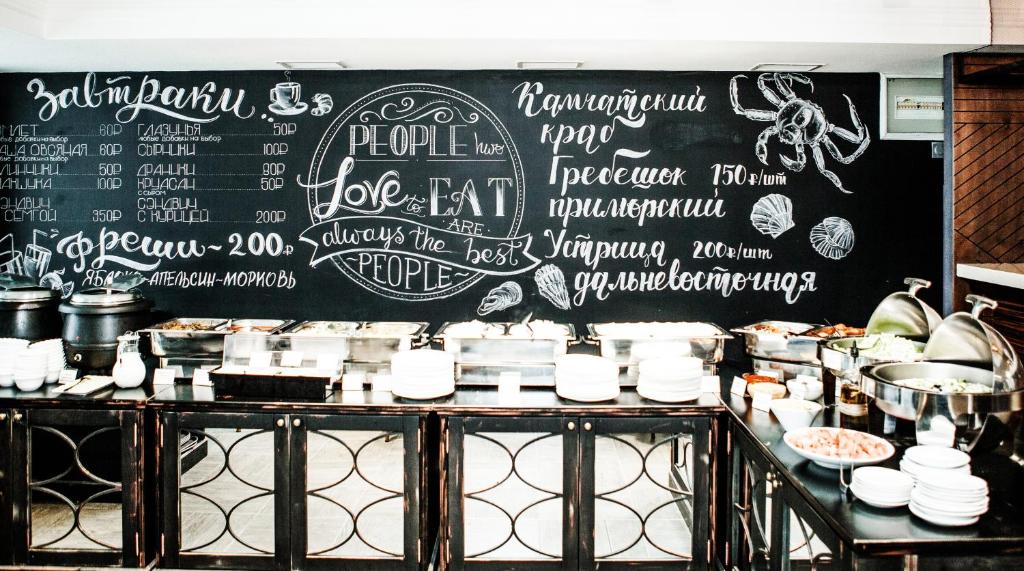 Завтраки
60₽
любые добавки на выбор
ОВСЯНАЯ 60₽
любые добавки на выбор
50₽
100₽
СЁМГОЙ 350₽
ГЛАЗУНЬЯ 50₽
любые добавки на выбор
СЫРНИКИ 100₽
ДРАНИКИ 90₽
КРУАСАН 50₽
С СЫРОМ
СЭНДВИЧ
С КУРИЦЕЙ 200₽
Фреши ~ 200₽
ЯБЛОКО-АПЕЛЬСИН-МОРКОВЬ
PEOPLE hwo
Love to EAT
ARE
always the best
~PEOPLE~
Камчатский
краб
Гребешок 150₽/шт
приморский
Устрица 200₽/шт
дальневосточная